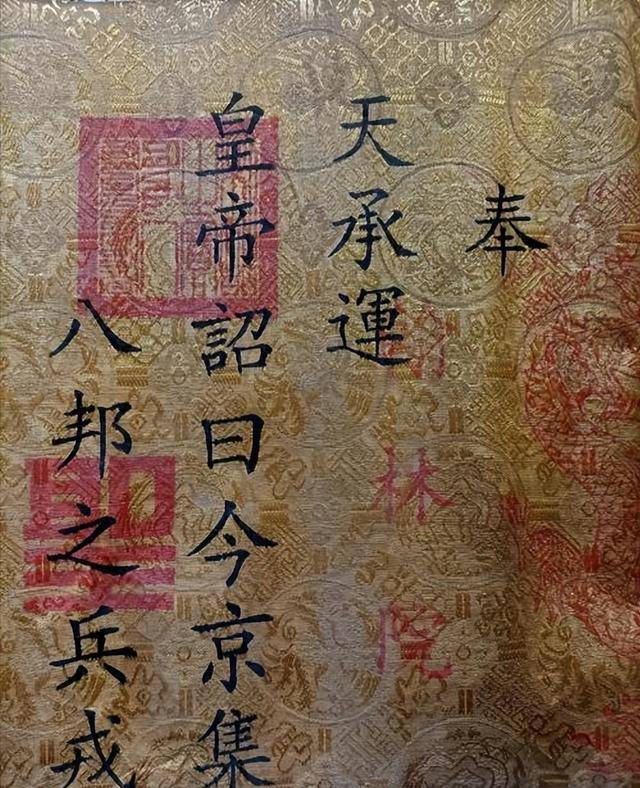 奉
天承運
皇帝詔曰今京集
八邦之兵戎
林院